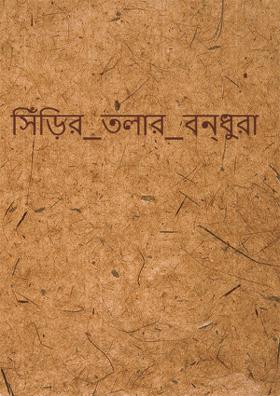 সিঁড়ির_তলার_বন্ধুরা